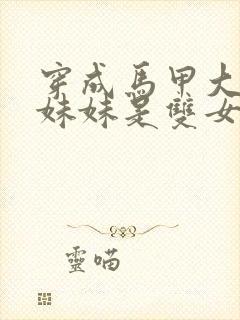 穿成馬甲大
妹妹是雙女
靈喵